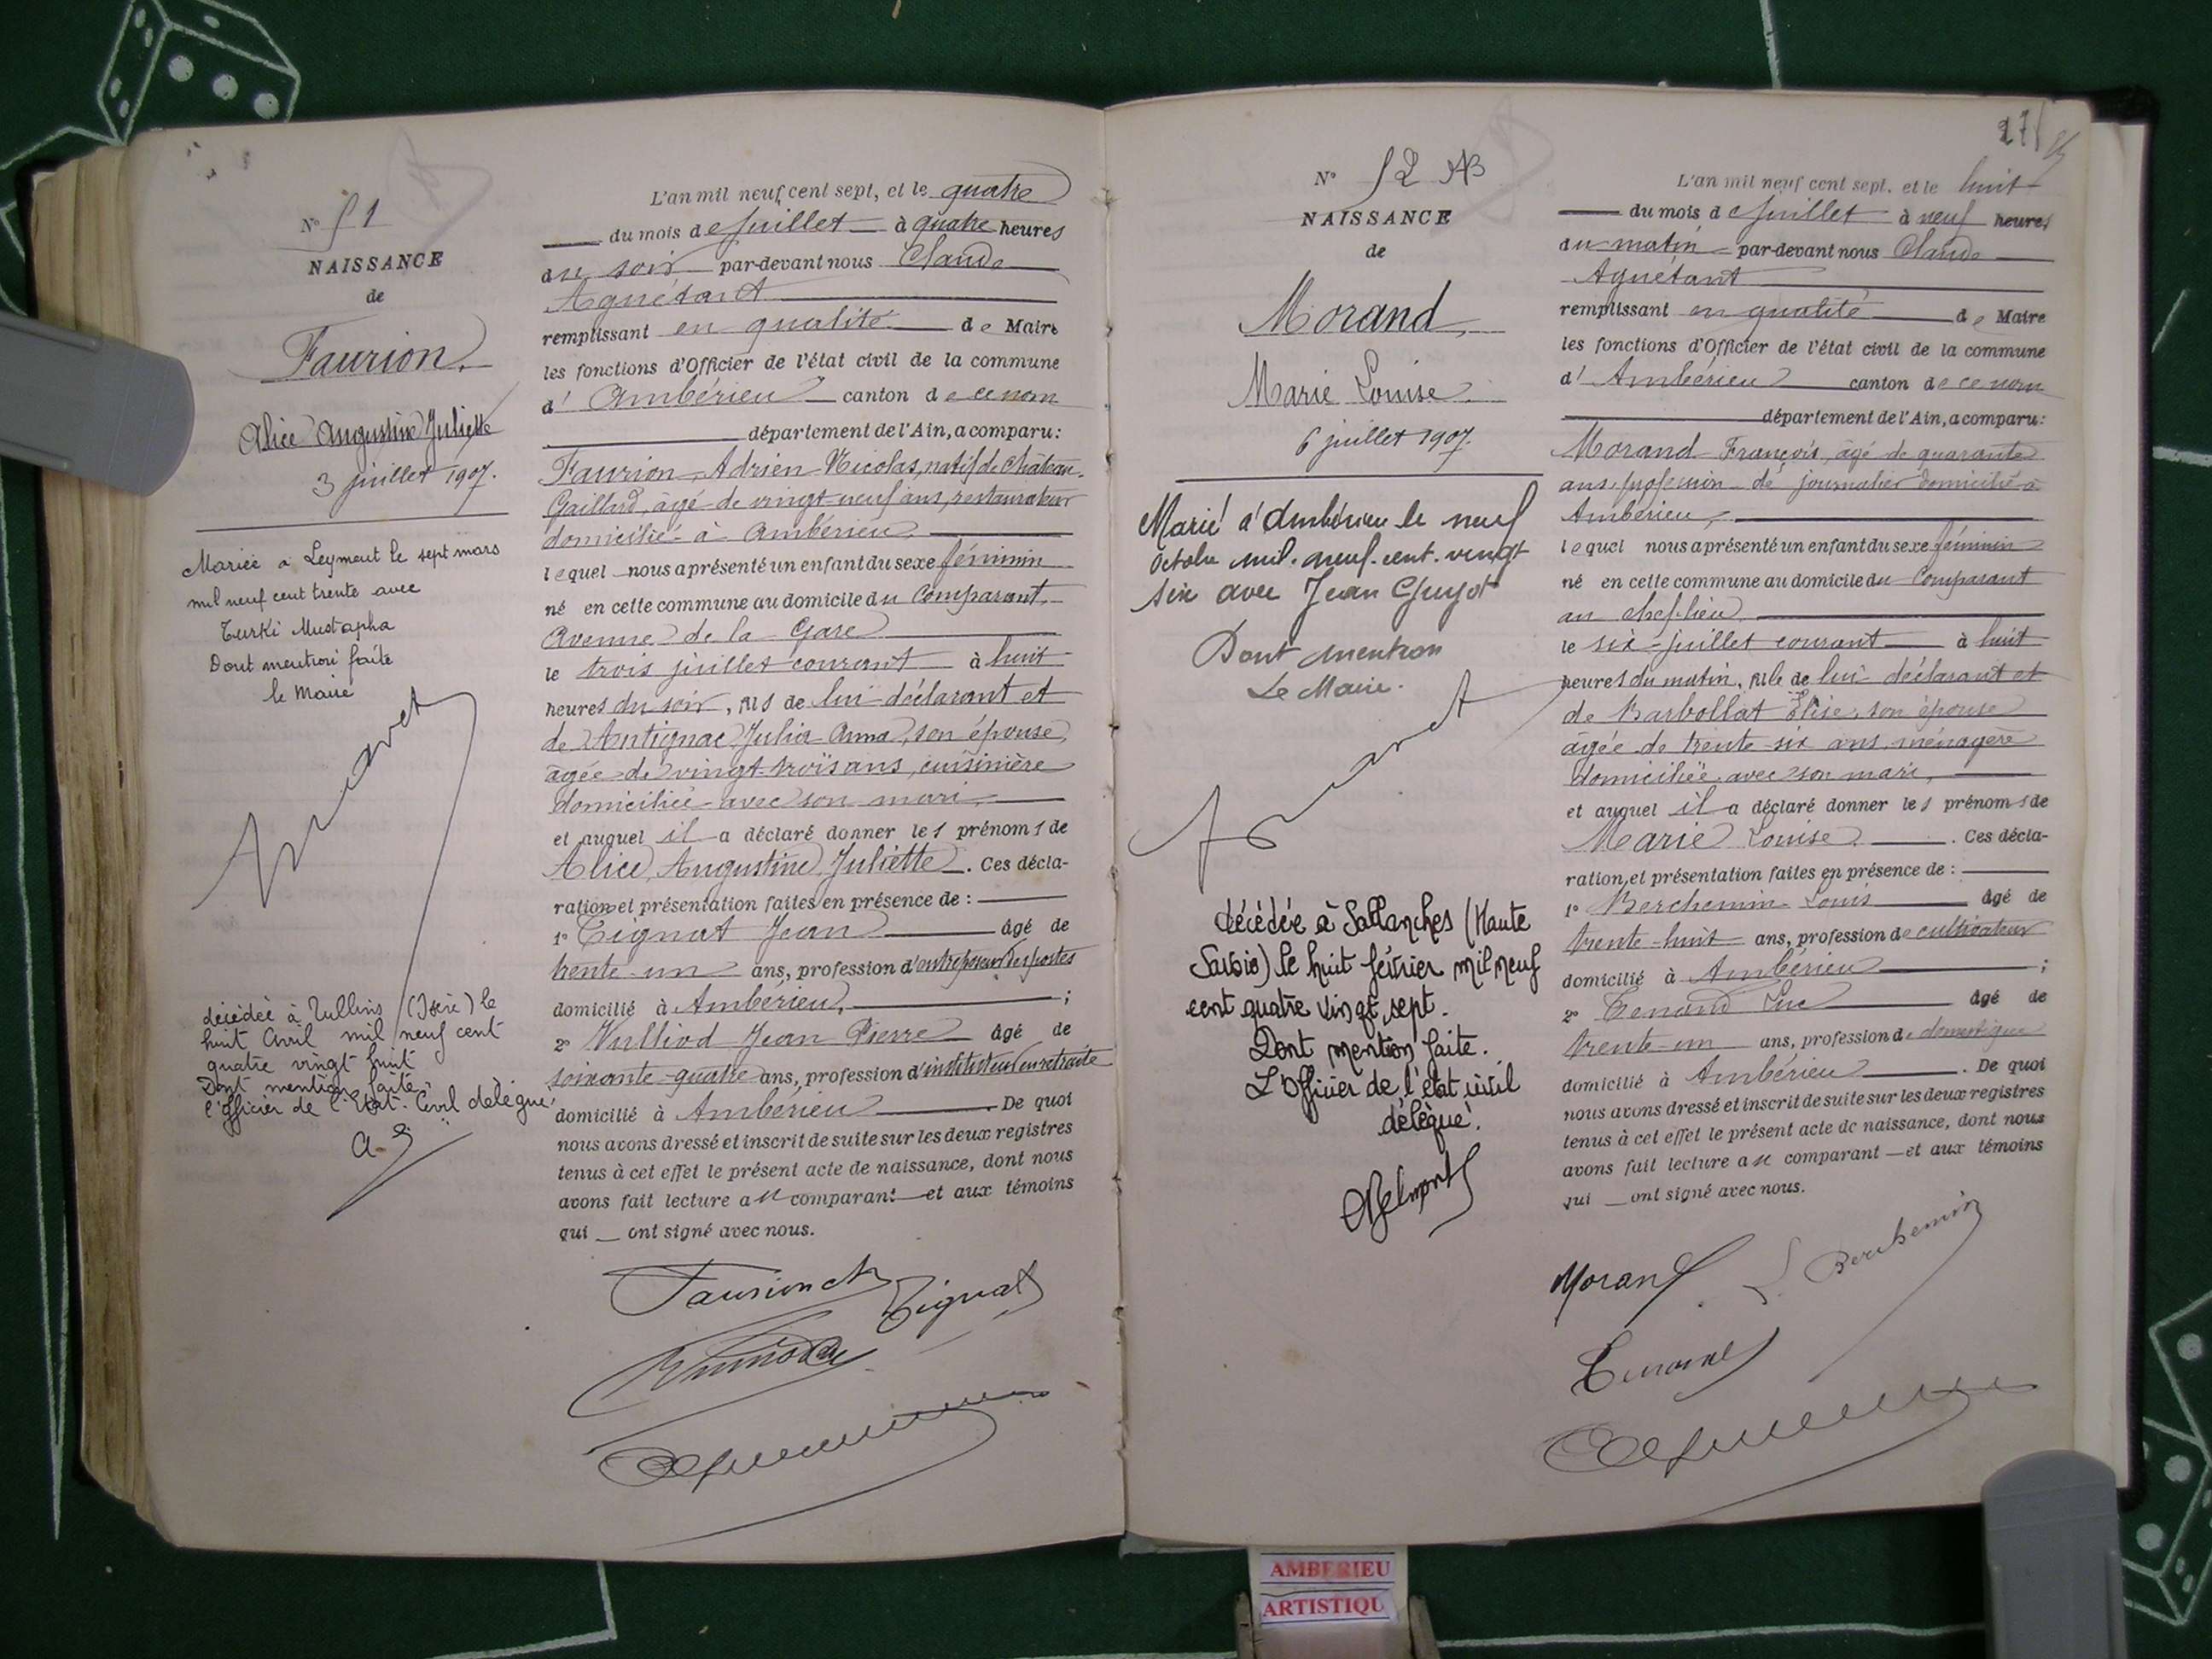 N° 51
NAISSANCE
de
Faurion
Alice Augustine Juliette
3 juillet 1907.
Mariée à Leyment le sept mars
mil neuf cent trente avec
Turki Mustapha
Dont mention faite
le Maire
décédée à Tullins (Isère) le
huit Avril mil neuf cent
quatre vingt huit
Dont mention faite,
l'officier de l'Etat-Civil délégué.
L'an mil neuf cent sept, et le quatre
du mois de Juillet à quatre heures
du soir par-devant nous Claude
Aguétant
remplissant en qualité de Maire
les fonctions d'Officier de l'état civil de la commune
d' Ambérieu canton de ce nom
département de l'Ain, a comparu:
Faurion, Adrien Nicolas, natif de Château-
Gaillard, âgé de vingt-neuf ans, restaurateur
domicilié à Ambérieu,
lequel nous a présenté un enfant du sexe féminin
né en cette commune au domicile du Comparant,
Avenue de la Gare
le trois juillet courant à huit
heures du soir, fils de lui déclarant et
de Antignac Julia Anna, son épouse,
âgée de vingt-trois ans, cuisinière
domiciliée avec son mari,
et auquel il a déclaré donner les prénoms de
Alice, Augustine, Juliette. Ces décla-
ration et présentation faites en présence de :
1° Tignat Jean âgé de
trente-un ans, profession d'entreposeur des postes
domicilié à Ambérieu, ;
2° Vulliod Jean Pierre âgé de
soixante-quatre ans, profession d'instituteur en retraite
domicilié à Ambérieu. De quoi
nous avons dressé et inscrit de suite sur les deux registres
tenus à cet effet le présent acte de naissance, dont nous
avons fait lecture au comparant et aux témoins
qui ont signé avec nous.
Faurion
Tignat
N° 52
NAISSANCE
de
Morand
Marie Louise
6 juillet 1907.
Marié à Ambérieu le neuf
Octobre mil-neuf-cent-vingt
six avec Jean Guyot
Dont mention
Le Maire.
Décédée à Sallanches (Haute
Savoie) le huit février mil neuf
cent quatre vingt sept.
Dont mention faite.
L'Officier de l'état civil
délégué.
27
L'an mil neuf cent sept, et le huit
du mois de Juillet à neuf heures
du matin par-devant nous Claude
Aguétant
remplissant en qualité de Maire
les fonctions d'Officier de l'état civil de la commune
d' Ambérieu canton de ce nom
département de l'Ain, a comparu:
Morand François, âgé de quarante
ans, profession de journalier domicilié à
Ambérieu,
lequel nous a présenté un enfant du sexe féminin
né en cette commune au domicile du Comparant
au chef-lieu
le six juillet courant à huit
heures du matin, fille de lui déclarant et
de Barbollat Elise, son épouse
âgée de trente-six ans, ménagère
domiciliée avec son mari,
et auquel il a déclaré donner les prénoms de
Marie Louise. Ces décla-
ration et présentation faites en présence de :
1° Berchemin Louis âgé de
trente-huit ans, profession de cultivateur
domicilié à Ambérieu ;
2° Tenand Luc âgé de
trente-un ans, profession de domestique
domicilié à Ambérieu. De quoi
nous avons dressé et inscrit de suite sur les deux registres
tenus à cet effet le présent acte de naissance, dont nous
avons fait lecture au comparant et aux témoins
qui ont signé avec nous.
Morand
L. Berchemin
Tenand
AMBERIEU
ARTISTIQU